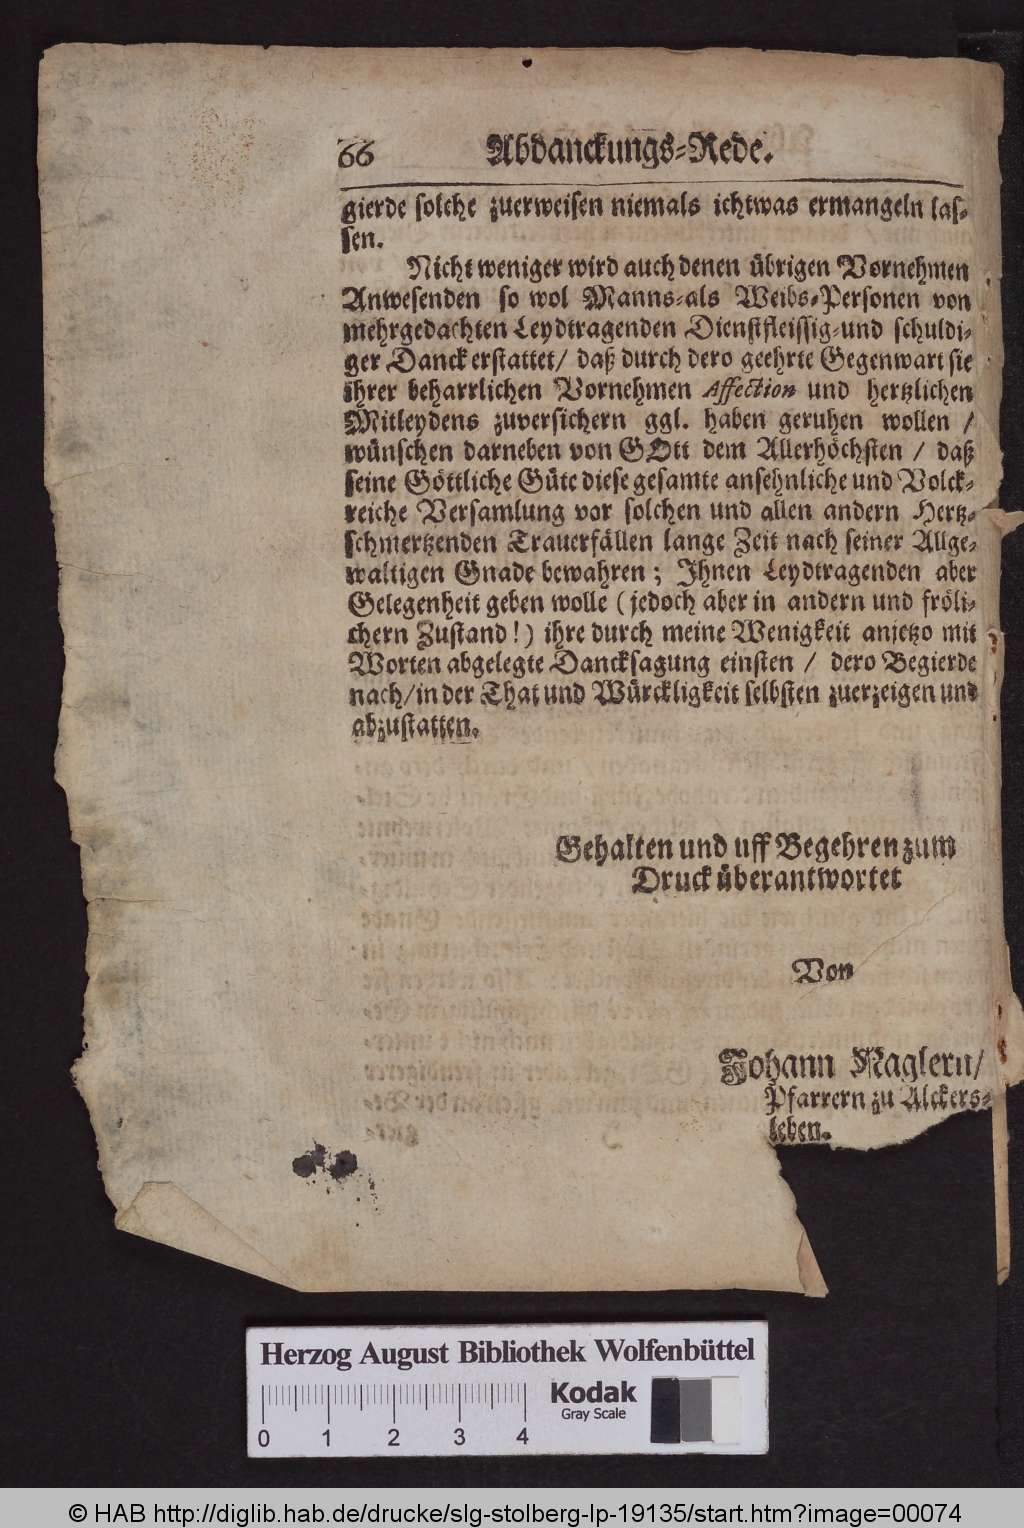 66 Abdanckungs-Rede.
gierde solche zuerweisen niemals ichtwas ermangeln las-
sen.
Nicht weniger wird auch denen übrigen Vornehmen
Anwesenden so wol Manns-als Weibs-Personen von
mehrgedachten Leydtragenden Dienstfleissig-und schuldi-
ger Danck erstattet/ daß durch dero geehrte Gegenwart sie
ihrer beharrlichen Vornehmen Affection und hertzlichen
Mitleydens zuversichern ggl. haben geruhen wollen /
wünschen darneben von GOtt dem Allerhöchsten / daß
seine Göttliche Güte diese gesamte ansehnliche und Volck-
reiche Versamlung vor solchen und allen andern Hertz-
schmertzenden Trauerfällen lange Zeit nach seiner Allge-
waltigen Gnade bewahren; Ihnen Leydtragenden aber
Gelegenheit geben wolle (jedoch aber in andern und fröli-
chern Zustand!) ihre durch meine Wenigkeit anjetzo mit
Worten abgelegte Dancksagung einsten / dero Begierde
nach/in der That und Würckligkeit selbsten zuerzeigen und
abzustatten.
Gehalten und uff Begehren zum
Druck überantwortet
Von
Johann Maglern/
Pfarrern zu Alckers-
leben.
Herzog August Bibliothek Wolfenbüttel
Kodak
Gray Scale
0 1 2 3 4
© HAB http://diglib.hab.de/drucke/slg-stolberg-lp-19135/start.htm?image=00074